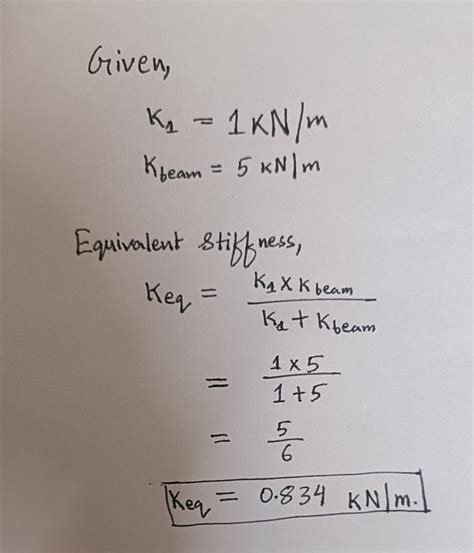 Given,
K1 = 1 KN/m
Kbeam = 5 KN/m
Equivalent Stiffness,
Keq = K1 x K beam / K1 + Kbeam
= 1 x 5 / 1 + 5
= 5 / 6
Keq = 0.834 KN/m.